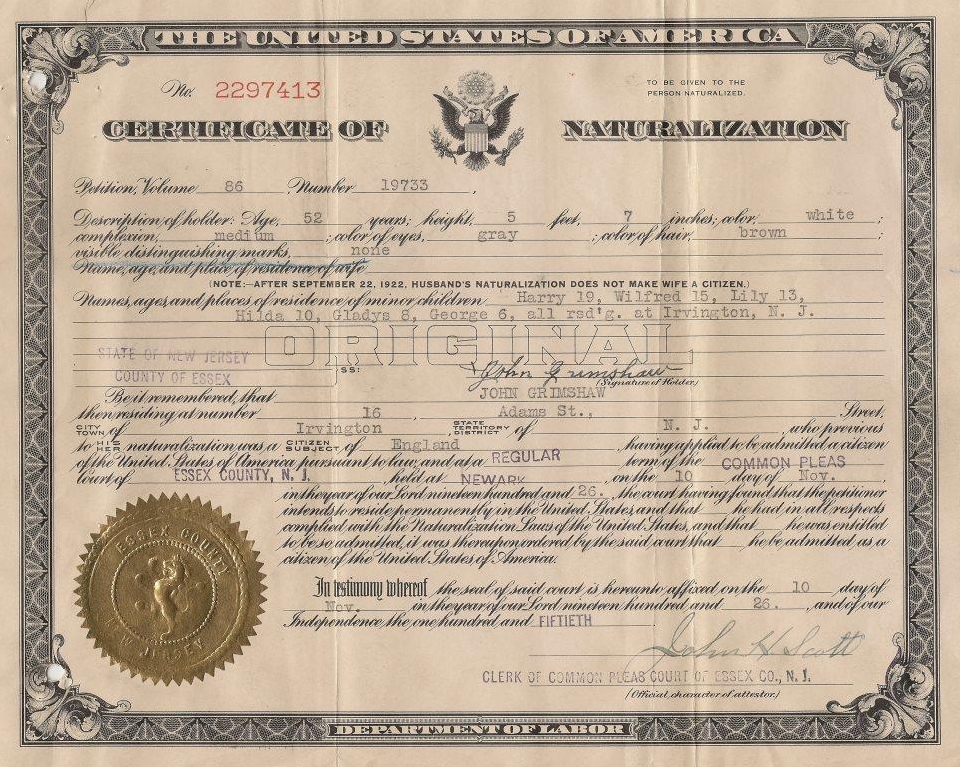 THE UNITED STATES OF AMERICA
No. 2297413
TO BE GIVEN TO THE
PERSON NATURALIZED.
CERTIFICATE OF NATURALIZATION
Petition, Volume 86, Number 19733,
Description of holder: Age, 52 years; height, 5 feet, 7 inches; color, white;
complexion, medium; color of eyes, gray; color of hair, brown;
visible distinguishing marks, none
Name, age, and place of residence of wife
(NOTE:—AFTER SEPTEMBER 22, 1922, HUSBAND'S NATURALIZATION DOES NOT MAKE WIFE A CITIZEN.)
Names, ages, and places of residence of minor children Harry 19, Wilfred 15, Lily 13,
Hilda 10, Gladys 8, George 6, all rsd'g. at Irvington, N. J.
ORIGINAL
STATE OF NEW JERSEY
COUNTY OF ESSEX
SS:
John Grimshaw
(Signature of Holder)
Be it remembered, that JOHN GRIMSHAW
then residing at number 16 Adams St., Street,
CITY TOWN of Irvington STATE TERRITORY DISTRICT of N. J., who previous
to HIS HER naturalization was a CITIZEN SUBJECT of England, having applied to be admitted a citizen
of the United States of America pursuant to law, and at a REGULAR term of the COMMON PLEAS
court of ESSEX COUNTY, N. J., held at NEWARK on the 10 day of Nov.,
in the year of our Lord nineteen hundred and 26., the court having found that the petitioner
intends to reside permanently in the United States, and that he had in all respects
complied with the Naturalization Laws of the United States, and that he was entitled
to be so admitted, it was thereupon ordered by the said court that he be admitted as a
citizen of the United States of America.
In testimony whereof the seal of said court is hereunto affixed on the 10 day of
Nov. in the year of our Lord nineteen hundred and 26., and of our
Independence the one hundred and FIFTIETH.
John H Scott
CLERK OF COMMON PLEAS COURT OF ESSEX CO., N. J.
(Official character of attestor.)
ESSEX COUNTY
NEW JERSEY
DEPARTMENT OF LABOR